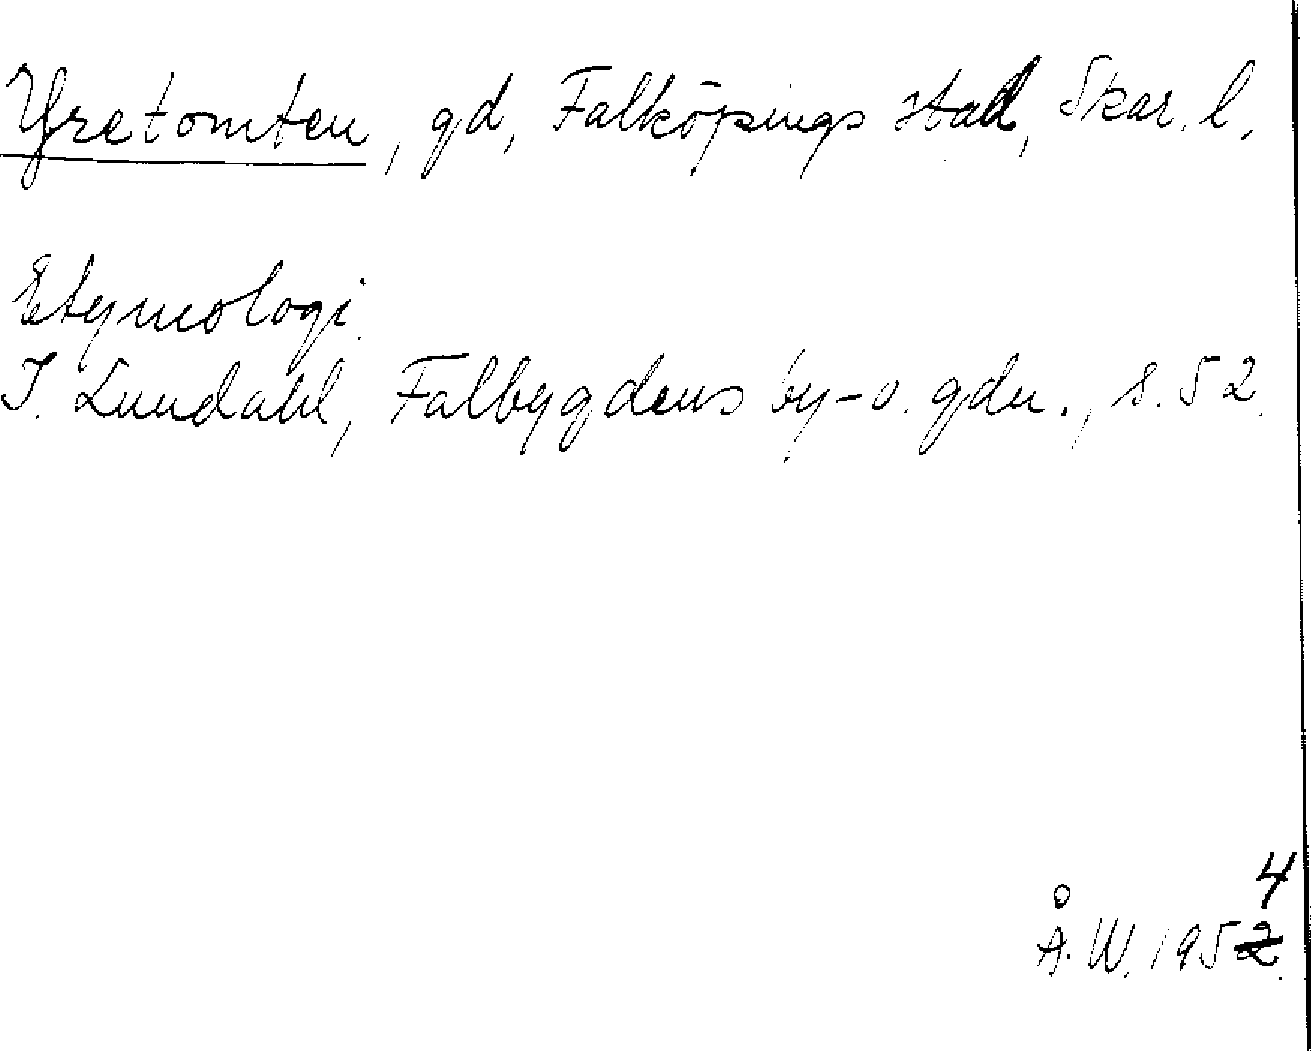 Yretomten, gd, Falköpings stad, Skar. l.
Etymologi.
I. Lundahl, Falbygdens by- o. gdn., s. 52.
4
Å. W. 1952.